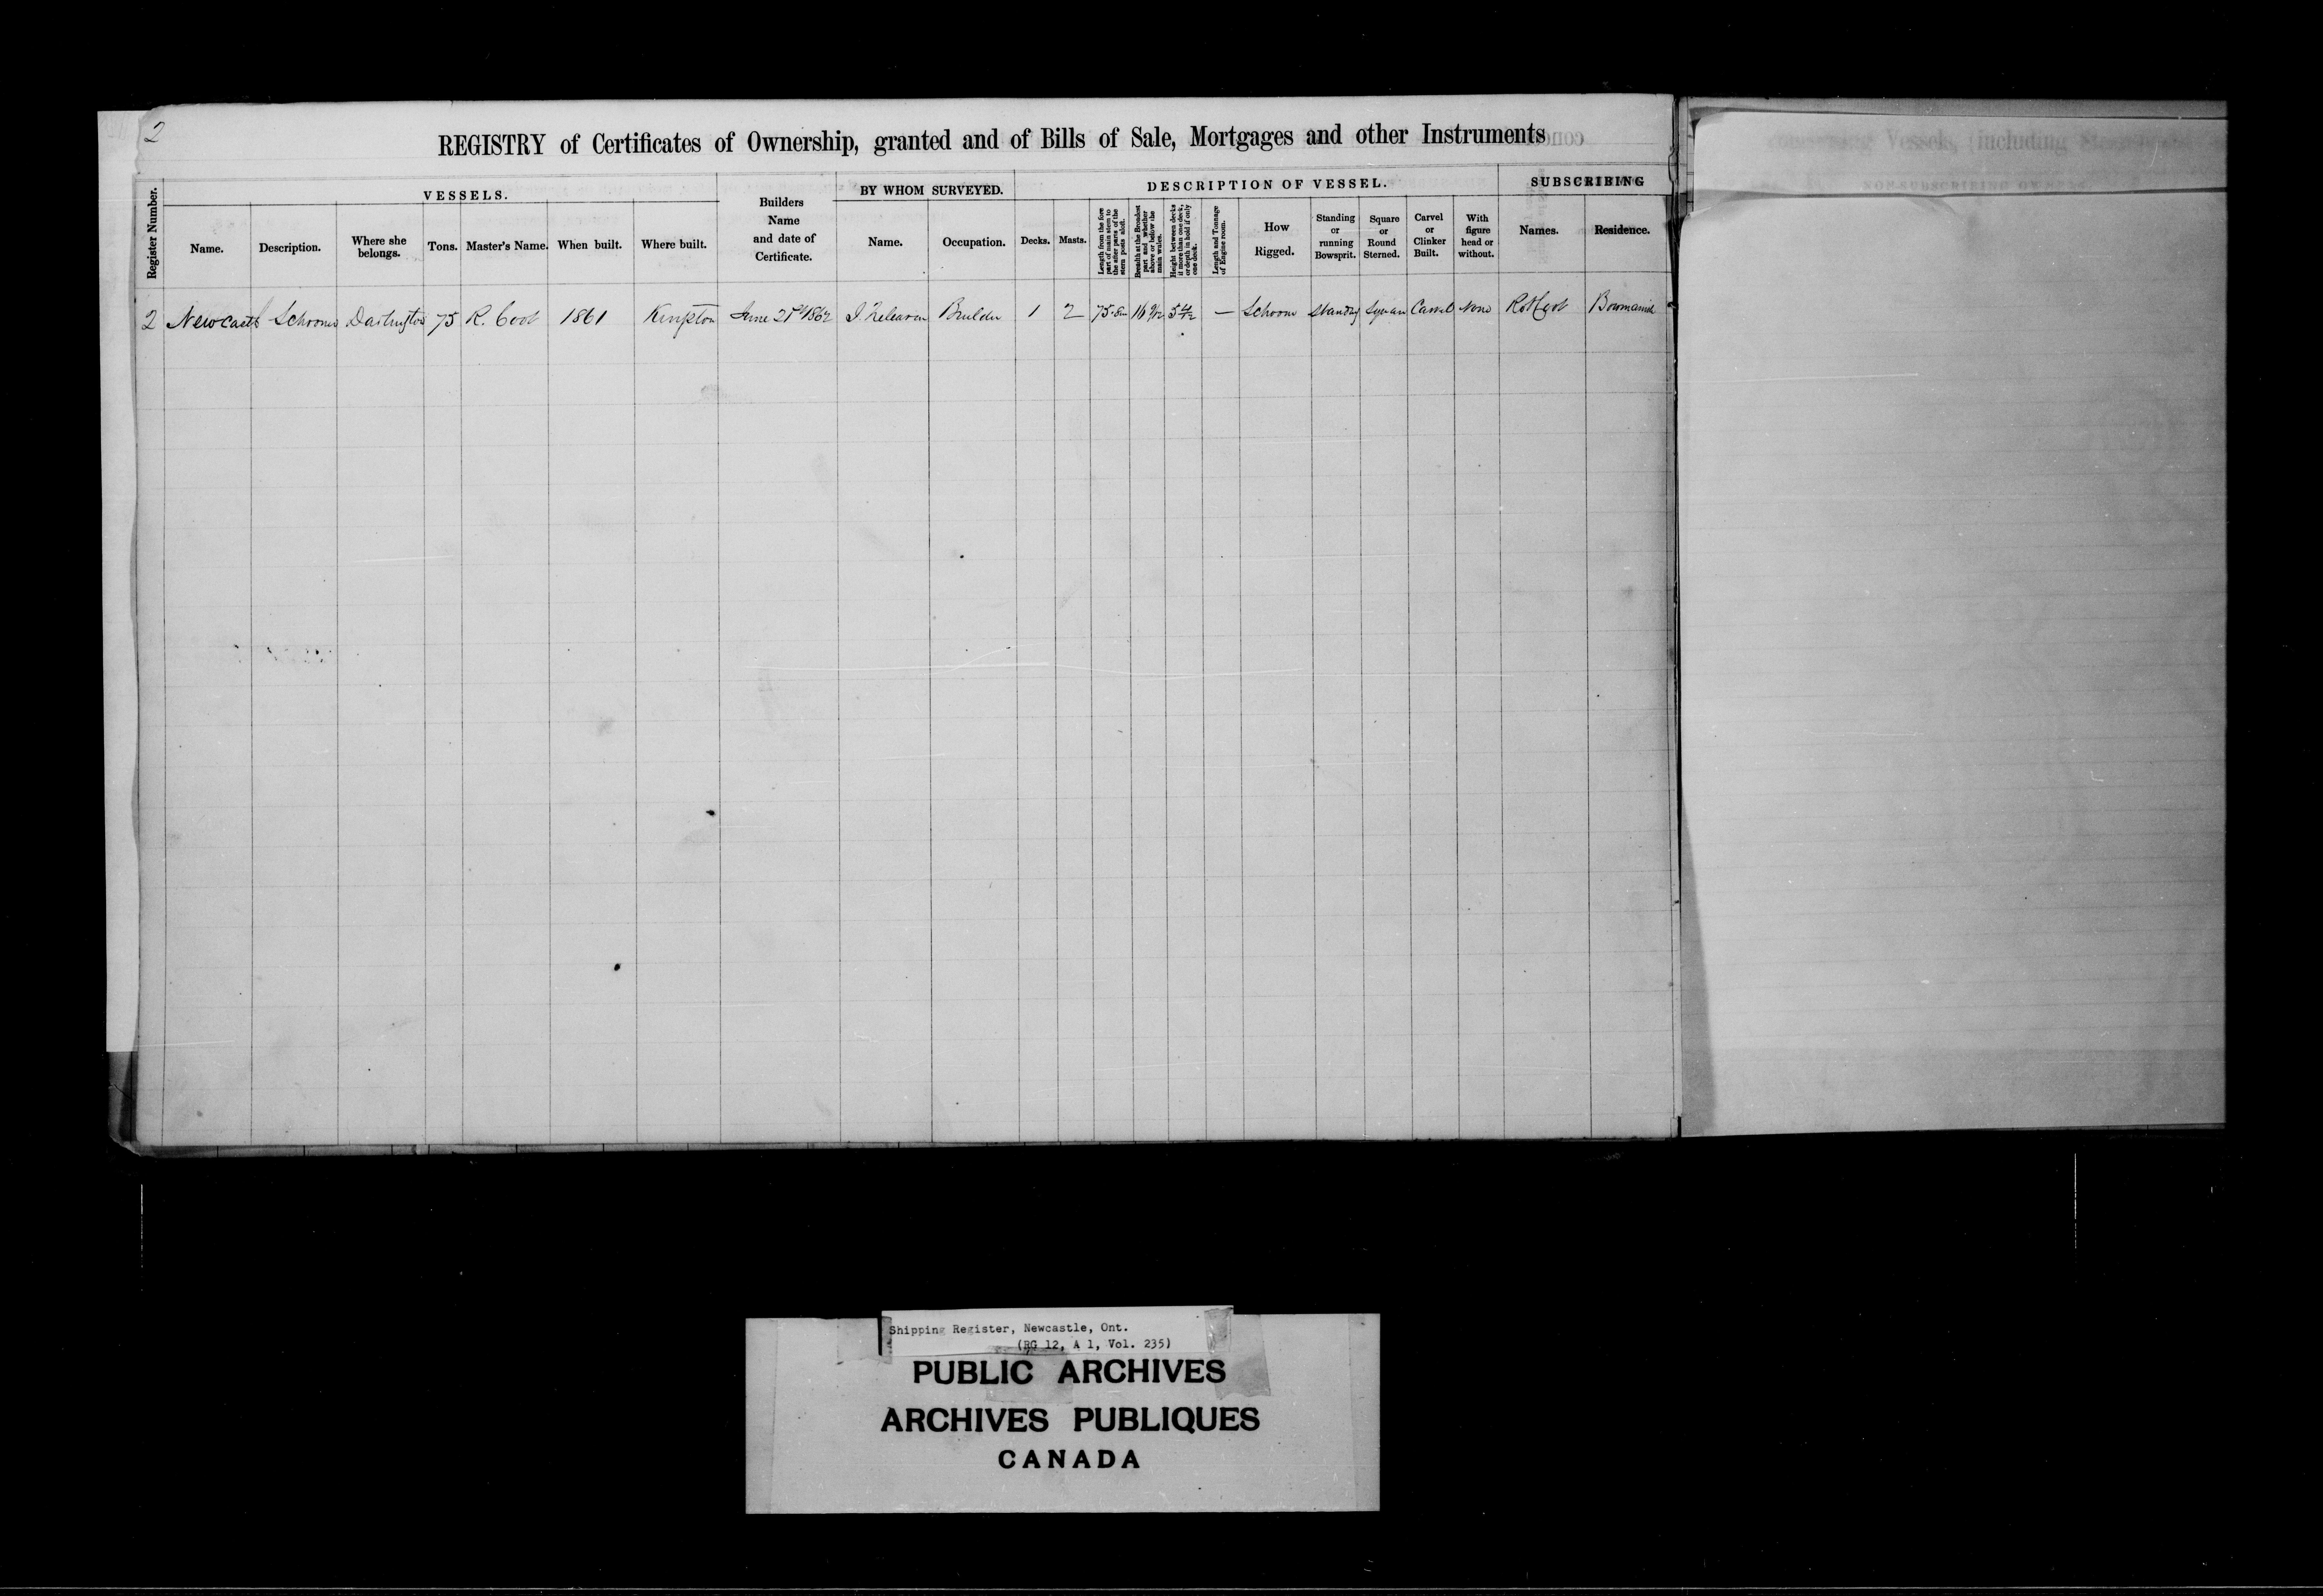 2
REGISTRY of Certificates of Ownership, granted and of Bills of Sale, Mortgages and other Instruments
Register Number.
VESSELS.
Name.
Description.
Where she
belongs.
Tons.
Master's Name.
When built.
Where built.
Builders
Name
and date of
Certificate.
BY WHOM SURVEYED.
Name.
Occupation.
DESCRIPTION OF VESSEL.
Decks.
Masts.
Length from the fore
part of main stem to
the after parts of the
stern posts aloft.
Breadth at the Brondest
part and whether
above or bellow the
main wales.
Height between decks
if more than one deck,
or depth in hold if only
one deck.
Length and Tonnage
of Engine room.
How
Rigged.
Standing
or
running
Bowsprit.
Square
or
Round
Sterned.
Carvel
or
Clinker
Built.
With
figure
head or
without.
SUBSCRIBING
Names.
Residence.
2 Newcastle Schooner Darlington 75 R. 1861 Kingston June 21st 1862 Builder 1 2 — Schooner Standing Square Carvel None Bowmanville
concerning Vessels, (including
NON-SUBSCRIBING OWNERS
Shipping Register, Newcastle, Ont.
(RG 12, A 1, Vol. 235)
PUBLIC ARCHIVES
ARCHIVES PUBLIQUES
CANADA